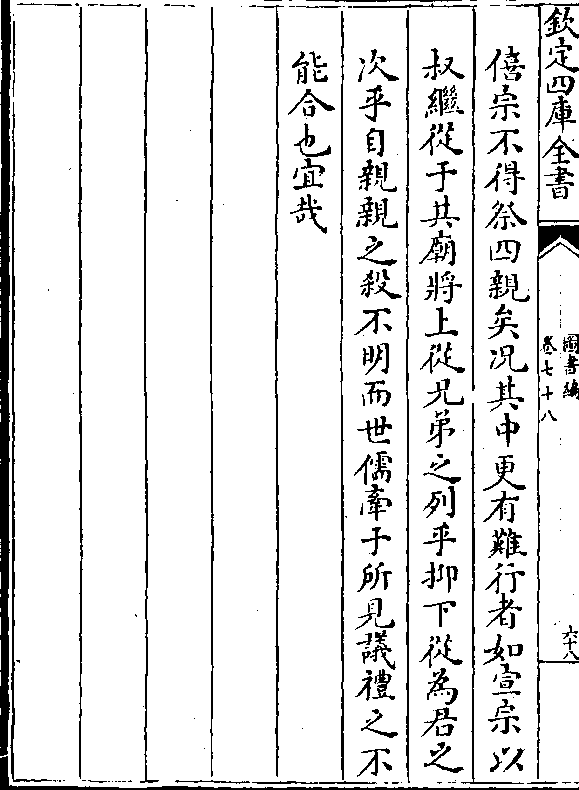 欽定四庫全書
圖書編
卷七十八
六十八
僖宗不得祭四親矣况其中更有難行者如宣宗以
叔繼從于其廟將上從兄弟之列乎抑下從為君之
次乎自親親之殺不明而世儒牽于所見議禮之不
能合也宜哉